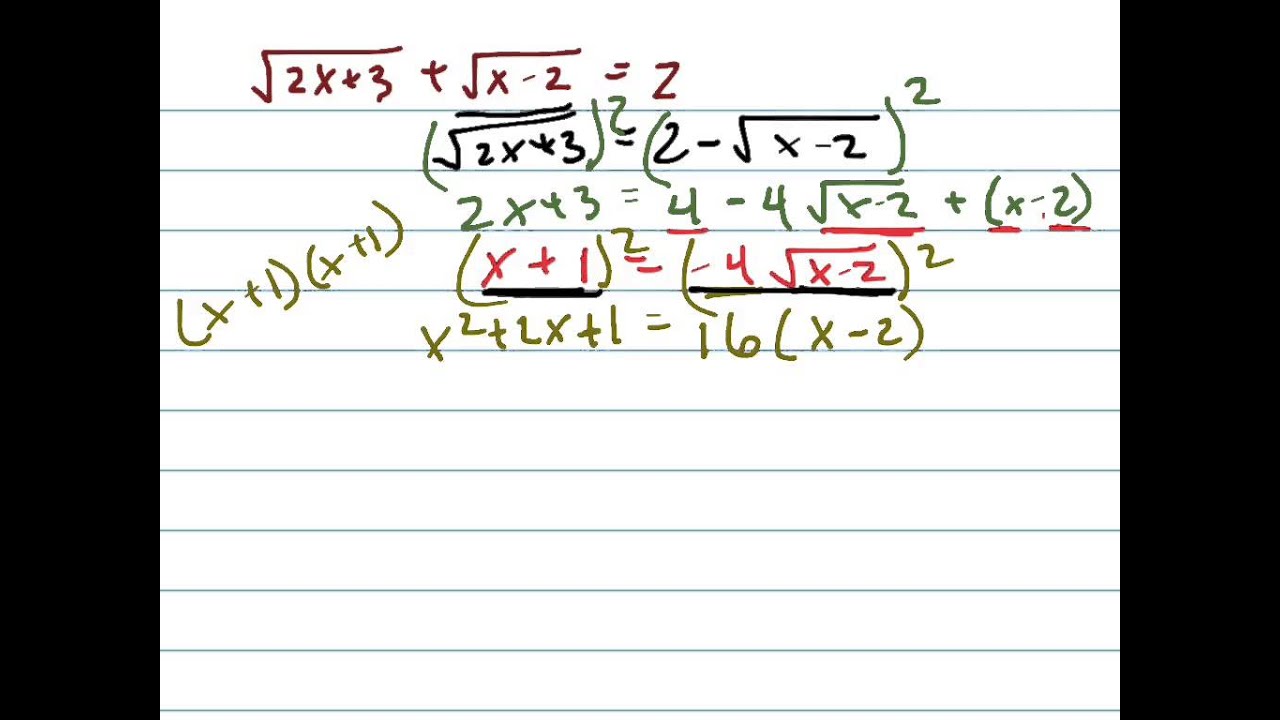 √(2x+3) + √(x-2) = 2
(√(2x+3))² = (2-√(x-2))²
2x+3 = 4 - 4√(x-2) + (x-2)
(x+1)² = (-4√(x-2))²
(x+1)(x+1)
x²+2x+1 = 16(x-2)